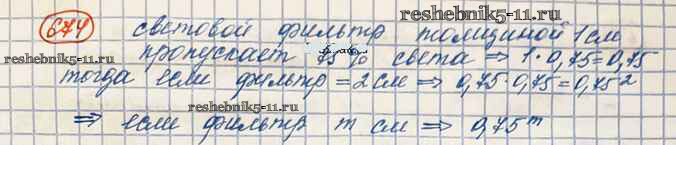 reshebnik5-11.ru
674 световой фильтр толщиной 1 см
пропускает 75% света ⇒ 1·0,75=0,75
reshebnik5-11.ru
тогда если фильтр = 2 см ⇒ 0,75·0,75=0,75²
reshebnik5-11.ru
⇒ если фильтр m см ⇒ 0,75ᵐ
reshebnik5-11.ru